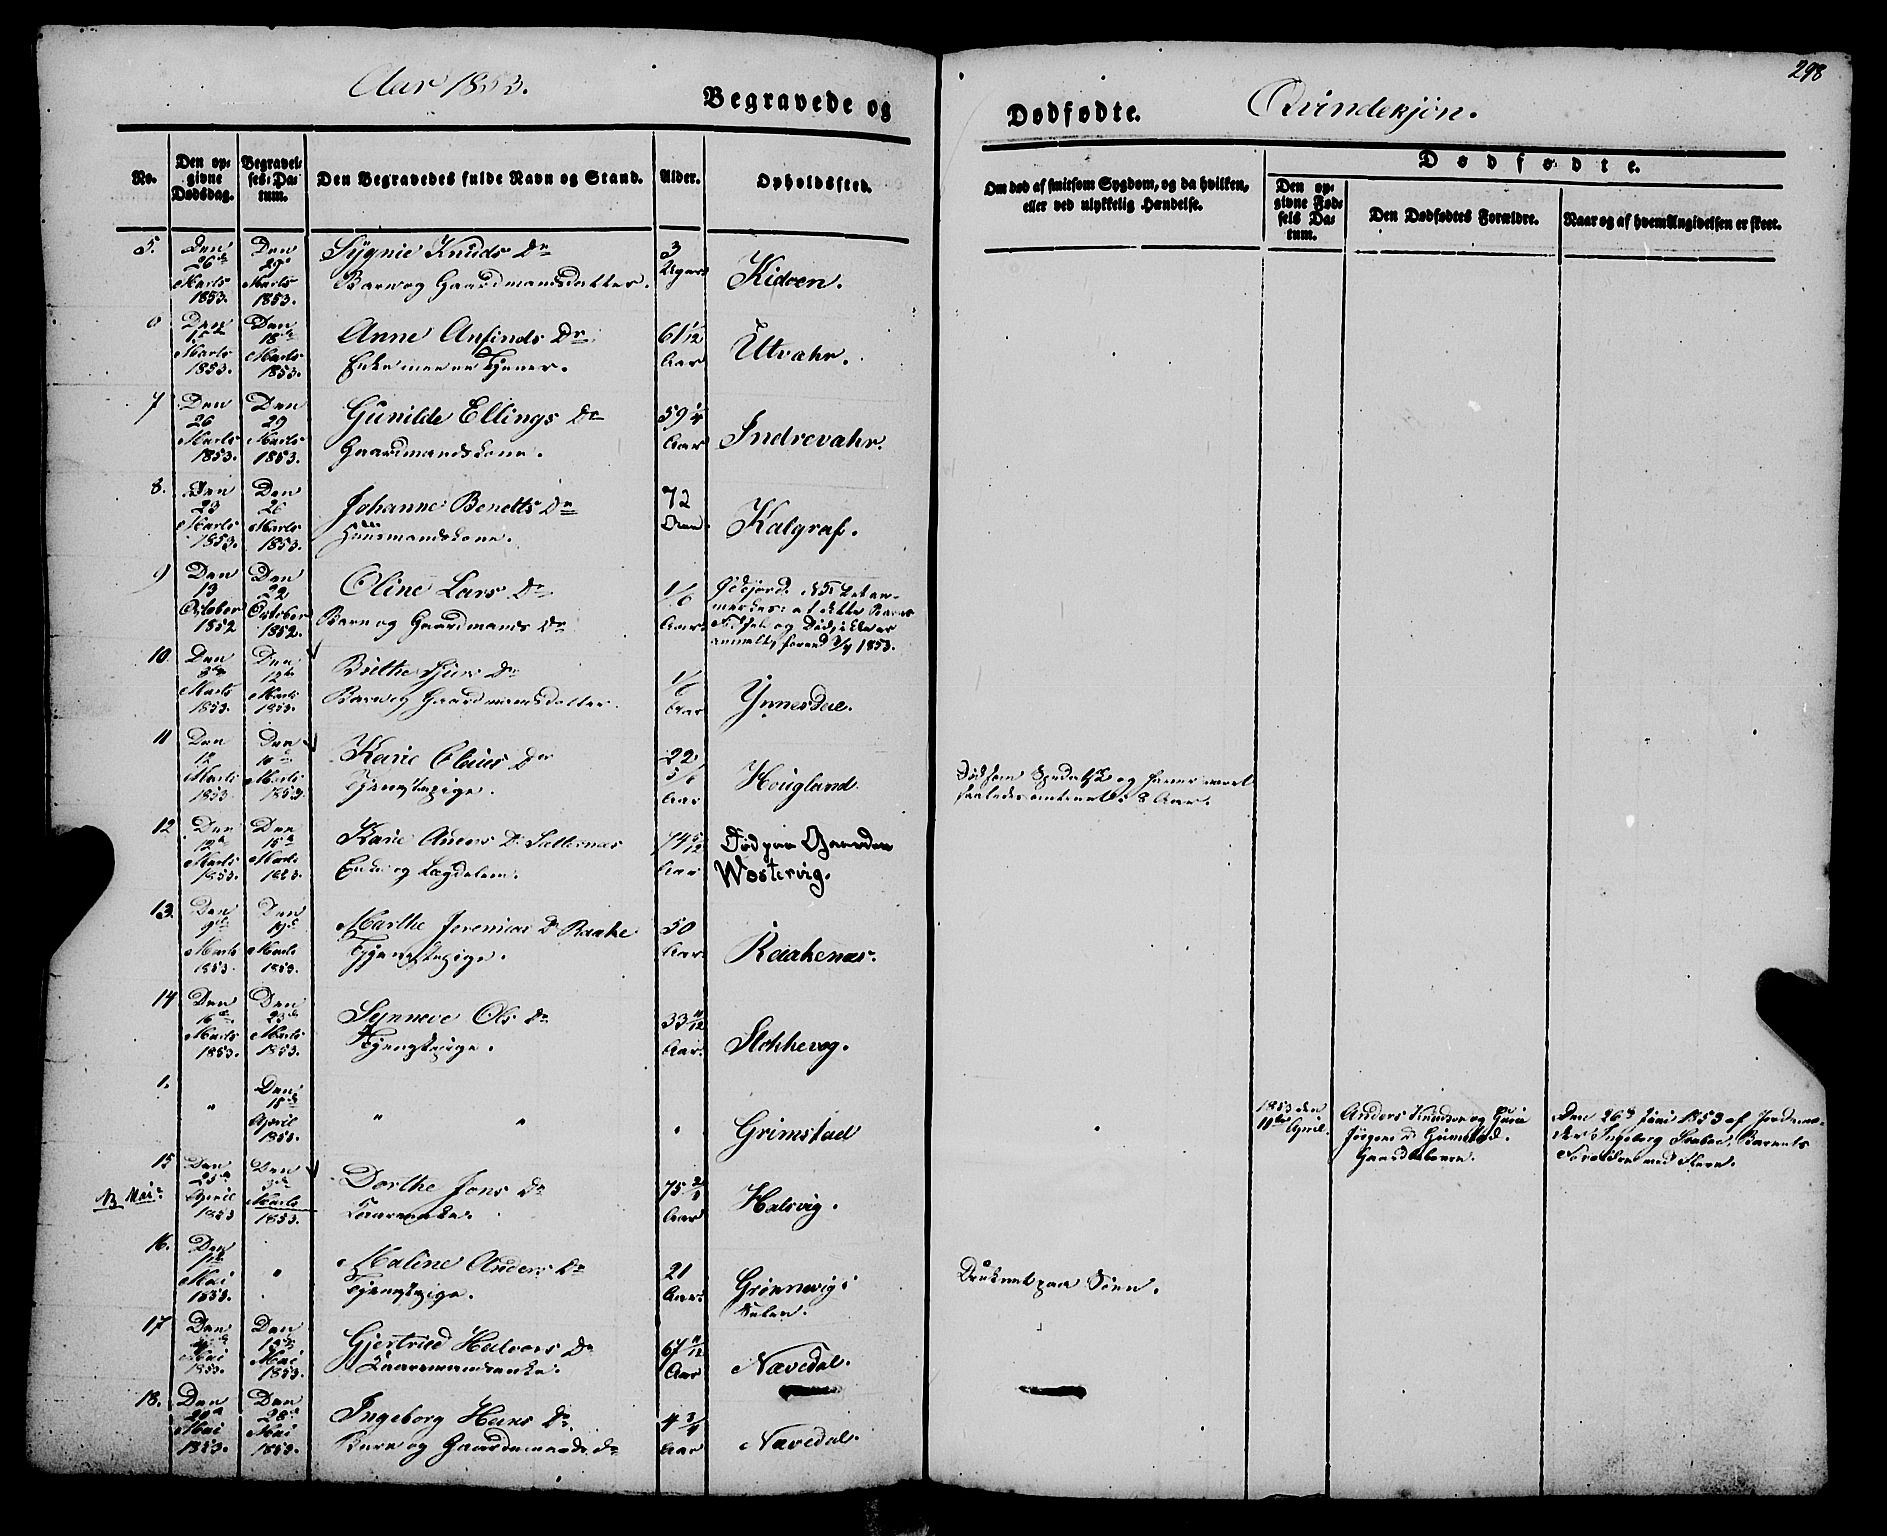 298
Aar 1853.
Begravede og
Dødfødte.
Qvindekjøn.
No.
Den op-
givne
Dødsdag.
Begravel-
ses-Da-
tum.
Den Begravedes fulde Navn og Stand.
Alder.
Opholdssted.
Om død af smitsom Sygdom, og da hvilken,
eller ved ulykkelig Hændelse.
Dødfødte.
Den op-
givne Fød-
sels Da-
tum.
Den Dødfødtes Forældre.
Naar og af hvem Angivelsen er skeet.
5.
Den
26de
Marts
1853.
Den
29de
Marts
1853.
Sygnie Knuds Dr
Barn og Gaardmandsdatter.
3
Kidøen.
Den
Marts
1853.
Den
18de
Marts
1853.
Anne Anfinds Dr
61 1/12
Aar
Utvahr.
7
Den
26
Marts
1853.
Den
29
Marts
1853.
Gunilde Ellings Dr
Gaardmandskone.
59 1/4
Aar
Indrevahr.
8.
Den
23
Marts
1853.
Den
26
Marts
1853.
Johanne Benetts Dr
Huusmandskone.
72
Kalgraf.
9
Den
19
October
1852
Den
22
October
1852.
Oline Lars Dr
Barn og Gaardmands Dr
1/6
Aar.
1853.
10.
Den
Marts
1853.
Den
12te
Marts
1853.
Brithe Sjurs Dr
Barn og Gaardmandsdatter.
1/6
Aar
Ynnesdal.
11
Den
12
Marts
1853
Den
Marts
1853
Karie Claus Dr
Tjenestepige.
22
5/6
Aar
Hougland.
Død som Spedalsk og
8 Aar.
12
Den
12te
Marts
1853.
Den
15de
Marts
1853.
Karie Anders Dr
Enke og Lægdslem.
74 5/12
Aar
Død paa Gaarden
Westervig.
13.
Den
9de
Marts
1853.
Den
19de
Marts
1853.
Marthe Jeremias Dr Raake
Tjenestepige.
50
Aar.
Raakenæs.
14
Den
16de
Marts
1853.
Den
23de
Marts
1853.
Synneve Ols Dr
Tjenestepige.
33 11/12
Aar.
Stokkevog.
1.
"
Den
15de
April
1853.
"
"
"
Grimstad
1853 den
11te April.
Anders Knudsen og
Gaardbrugere.
Den 26de Juni 1853 af Jordemo-
der Ingeborg
15
NB Mai
Den
25de
April
1853
Den
3de
Marts
1853.
Dorthe Jons Dr
75 3/8
Aar
Halsvig.
16.
Den
Mai
1853.
"
Maline Anders Dr
Tjenestepige.
21
Aar.
Grønnevig
Druknet paa Søen.
17
Den
Mai
1853.
Den
13de
Mai
1853.
Gjertrud Halvors Dr
Kaarmandsenke.
67 11/12
Aar
Nævedal.
18.
Den
20de
Mai
1853.
Den
28de
Mai
1853.
Ingeborg Hans Dr
Barn og Gaardmands Dr
4 3/4
Aar
Nævedal.